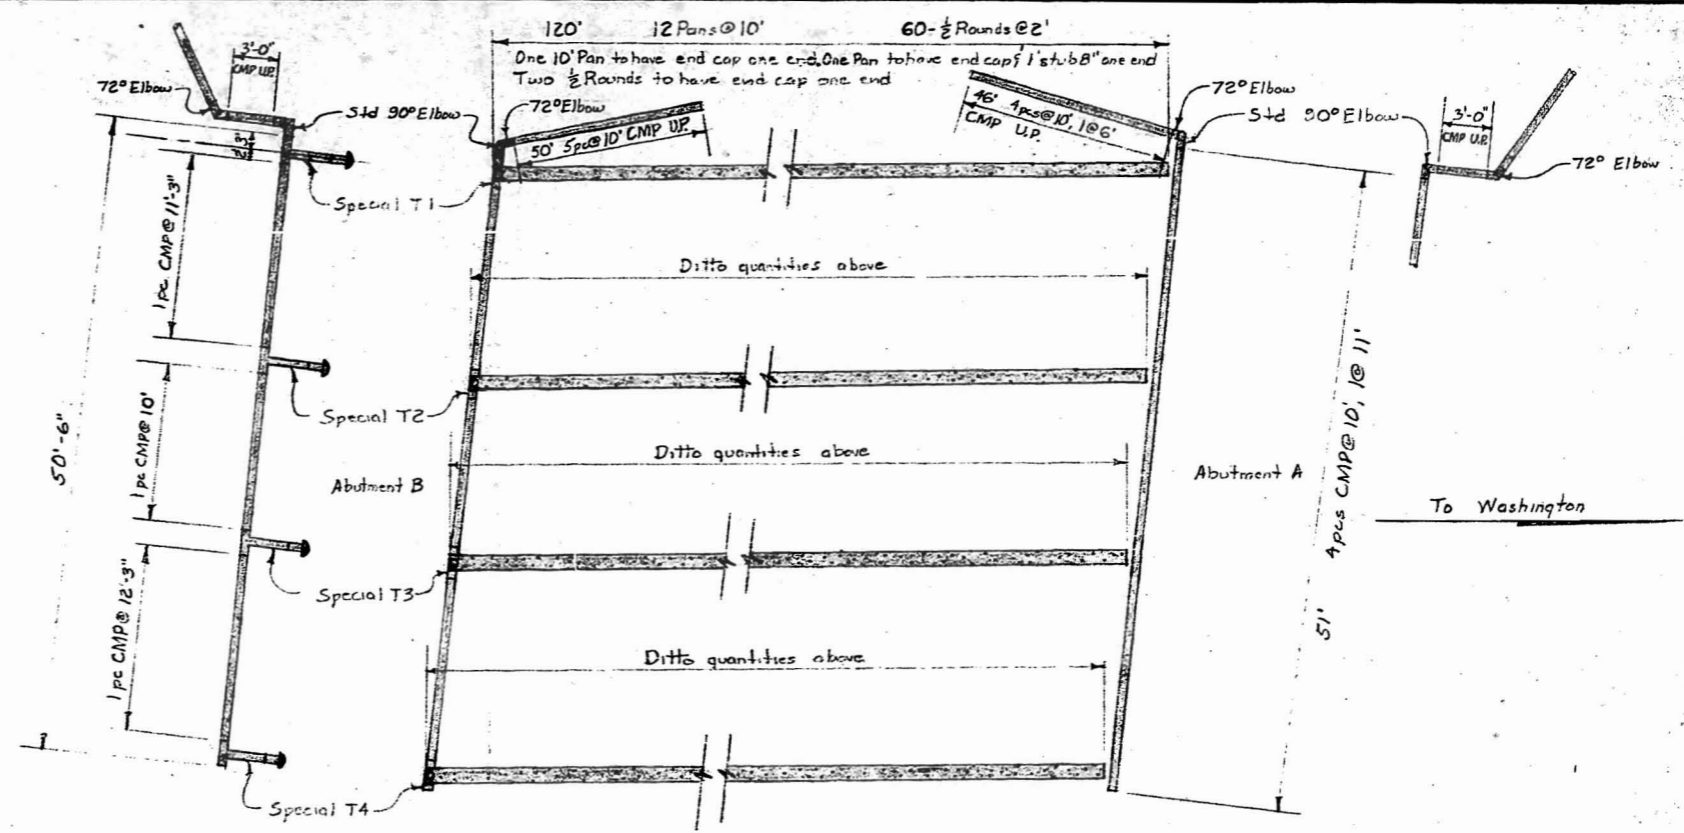 120' 12 Pans @ 10' 60-½ Rounds @ 2'
One 10' Pan to have end cap one end, One Pan to have end cap & 1' stub 8" one end
Two ½ Rounds to have end cap one end
3'-0"
CMP U.P.
72° Elbow
Std 90° Elbow
72° Elbow
50' 5pc@10' CMP U.P.
46' 4pcs@10', 1@6'
CMP U.P.
72° Elbow
Std 90° Elbow
3'-0"
CMP U.P.
72° Elbow
Special T1
1 pc CMP@ 11'-3"
Ditto quantities above
Special T2
1 pc CMP@ 10'
50'-6"
Ditto quantities above
Abutment B
Abutment A
To Washington
51' 4pcs CMP@ 10', 1@ 11'
Special T3
1 pc CMP@ 12'-3"
Ditto quantities above
Special T4